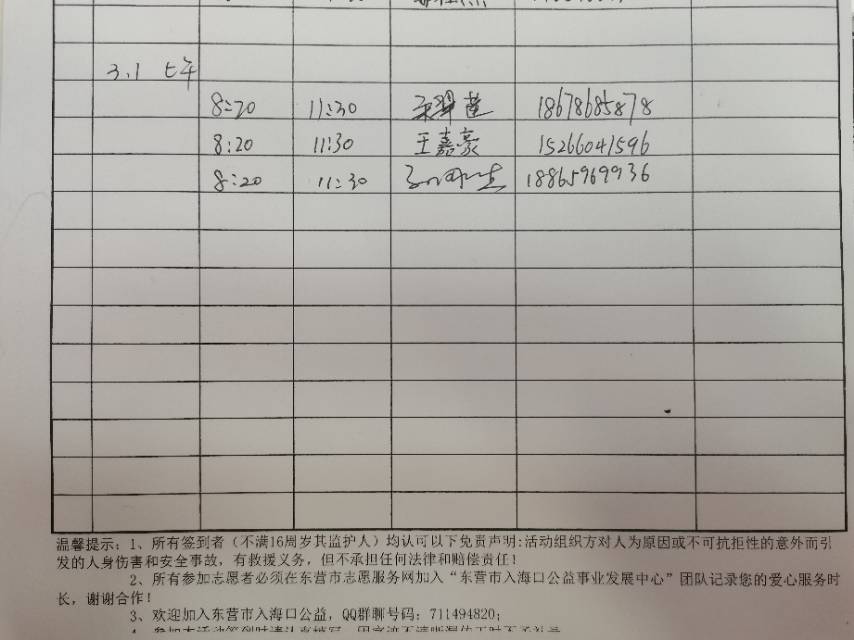 3.1 上午
8:20 11:30 18678685878
8:20 11:30 王嘉豪 15266041596
8:20 11:30 18865969936
温馨提示：1、所有签到者（不满16周岁其监护人）均认可以下免责声明:活动组织方对人为原因或不可抗拒性的意外而引
发的人身伤害和安全事故，有救援义务，但不承担任何法律和赔偿责任！
2、所有参加志愿者必须在东营市志愿服务网加入“东营市入海口公益事业发展中心”团队记录您的爱心服务时
长，谢谢合作！
3、欢迎加入东营市入海口公益，QQ群聊号码：711494820；